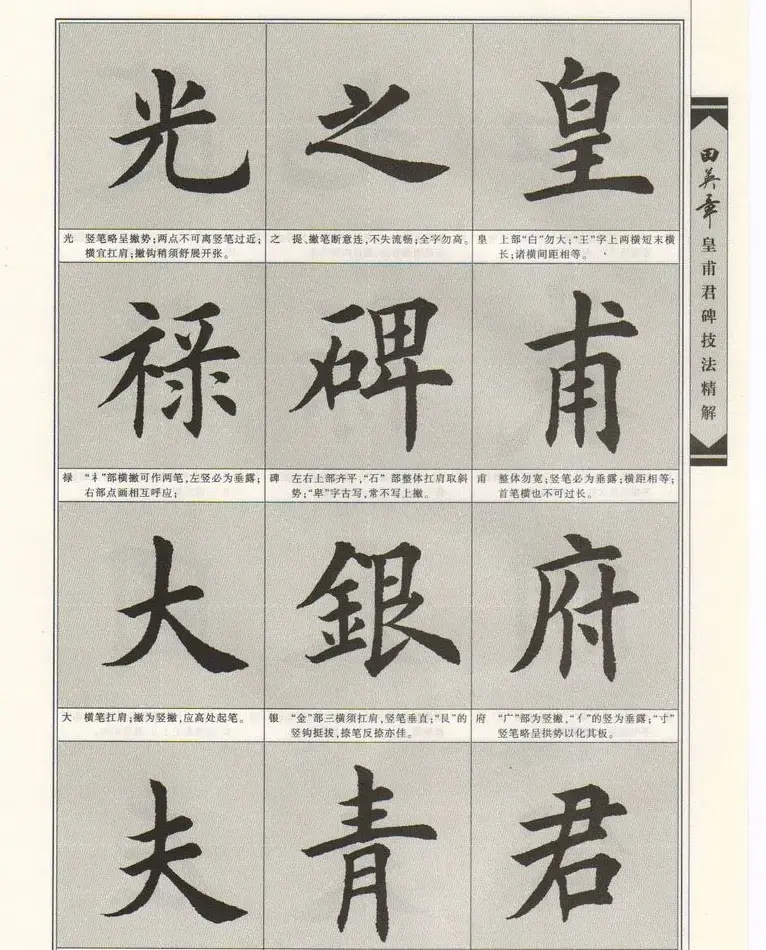 田英章
皇甫君碑技法精解
皇
皇 上部“白”勿大;“王”字上两横短末横
长;诸横间距相等。
甫
甫 整体勿宽;竖笔必为垂露;横距相等;
首笔横也不可过长。
府
府 “广”部为竖撇,“亻”的竖为垂露;“寸”
竖笔略呈拱势以化其板。
君
之
之 提、撇笔断意连,不失流畅;全字勿高。
碑
碑 左右上部齐平,“石”部整体扛肩取斜
势;“卑”字古写,常不写上撇。
銀
银 “金”部三横须扛肩,竖笔垂直;“艮”的
竖钩挺拔,捺笔反捺亦佳。
青
光
光 竖笔略呈撇势;两点不可离竖笔过近;
横宜扛肩;撇钩稍须舒展开张。
禄
禄 “礻”部横撇可作两笔,左竖必为垂露;
右部点画相互呼应;
大
大 横笔扛肩;撇为竖撇,应高处起笔。
夫